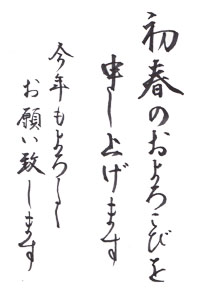 初春のおよろこびを
申し上げます
今年もよろしく
お願い致します